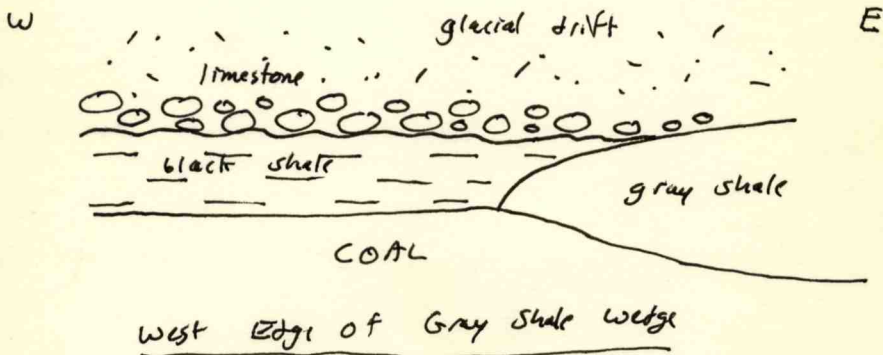 W glacial drift E
limestone
black shale
gray shale
COAL
West Edge of Gray Shale Wedge